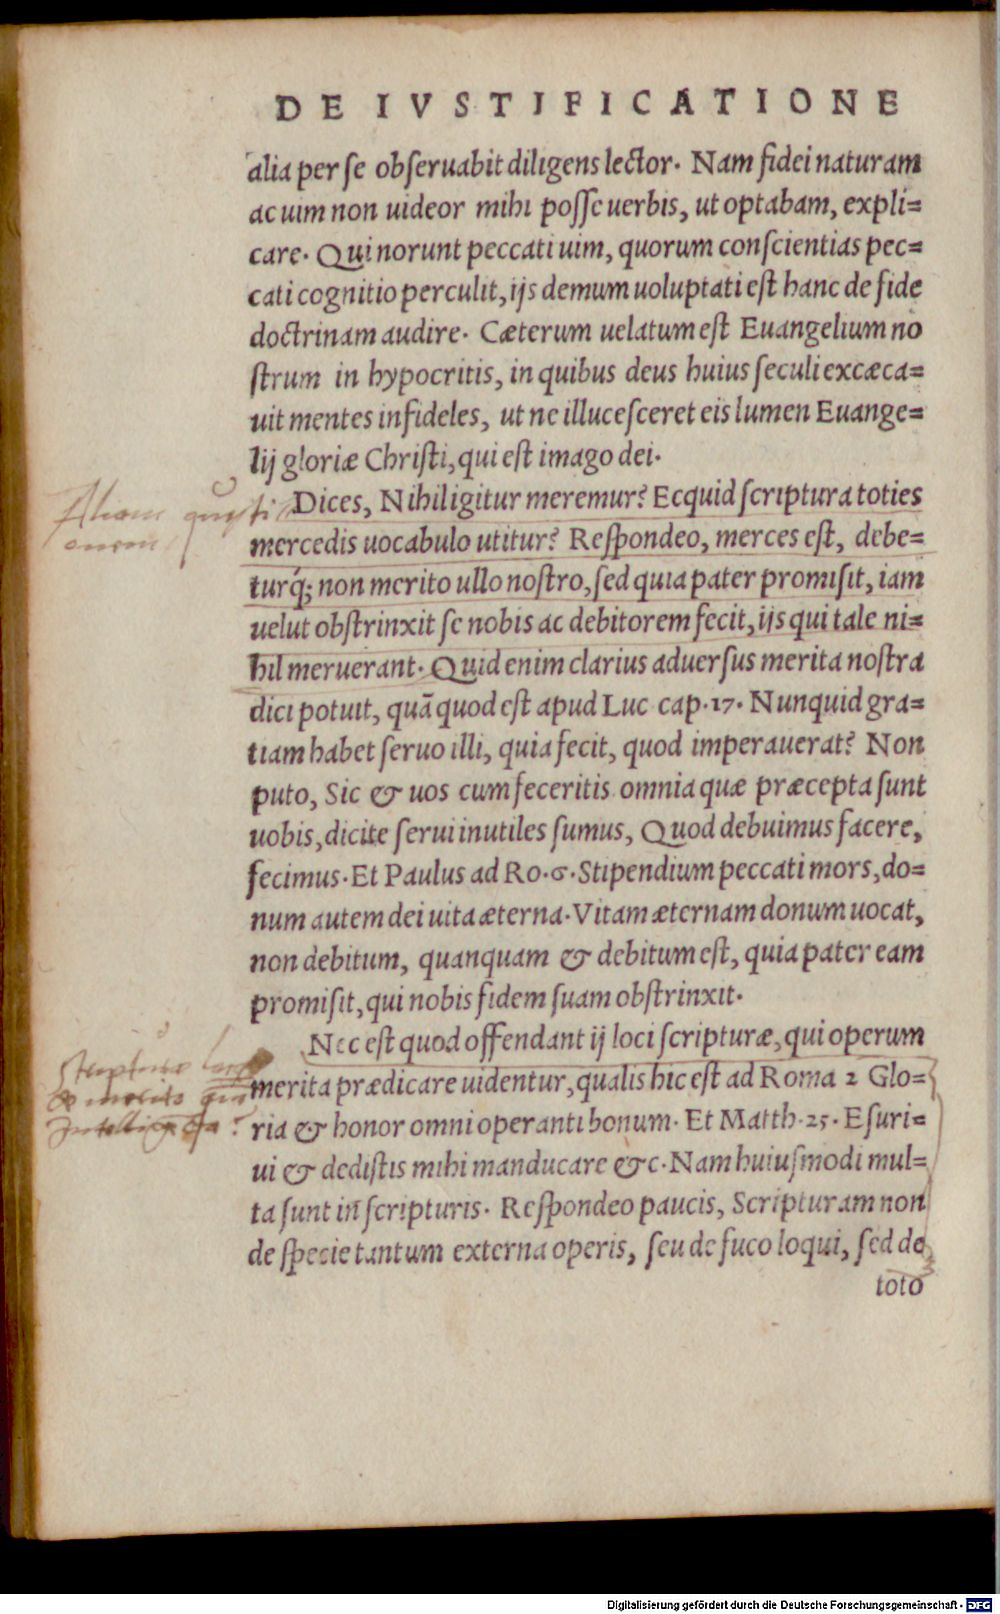 DE IVSTIFICATIONE
alia per ſe obſeruabit diligens lector. Nam fidei naturam
ac uim non uideor mihi poſſe uerbis, ut optabam, expli=
care. Qui norunt peccati uim, quorum conſcientias pec=
cati cognitio perculit, ijs demum uoluptati eſt hanc de fide
doctrinam audire. Cæterum uelatum eſt Euangelium no
ſtrum in hypocritis, in quibus deus huius ſeculi excæca=
uit mentes infideles, ut ne illuceſceret eis lumen Euange=
lij gloriæ Chriſti, qui eſt imago dei.
Dices, Nihil igitur meremur? Ecquid ſcriptura toties
mercedis uocabulo utitur? Reſpondeo, merces eſt, debe=
turq́; non merito ullo noſtro, ſed quia pater promiſit, iam
uelut obſtrinxit ſe nobis ac debitorem fecit, ijs qui tale ni=
hil meruerant. Quid enim clarius aduerſus merita noſtra
dici potuit, quā quod eſt apud Luc cap.17. Nunquid gra=
tiam habet ſeruo illi, quia fecit, quod imperauerat? Non
puto, Sic & uos cum feceritis omnia quæ præcepta ſunt
uobis, dicite ſerui inutiles ſumus, Quod debuimus facere,
fecimus. Et Paulus ad Ro.6. Stipendium peccati mors, do=
num autem dei uita æterna. Vitam æternam donum uocat,
non debitum, quanquam & debitum eſt, quia pater eam
promiſit, qui nobis fidem ſuam obſtrinxit.
Nec eſt quod offendant ij loci ſcripturæ, qui operum
merita prædicare uidentur, qualis hic eſt ad Roma 2 Glo=
ria & honor omni operanti bonum. Et Matth.25. Eſuri=
ui & dediſtis mihi manducare &c. Nam huiuſmodi mul=
ta ſunt in ſcripturis. Reſpondeo paucis, Scripturam non
de ſpecie tantum externa operis, ſeu de fuco loqui, ſed de
toto
Digitalisierung gefördert durch die Deutsche Forschungsgemeinschaft - DFG